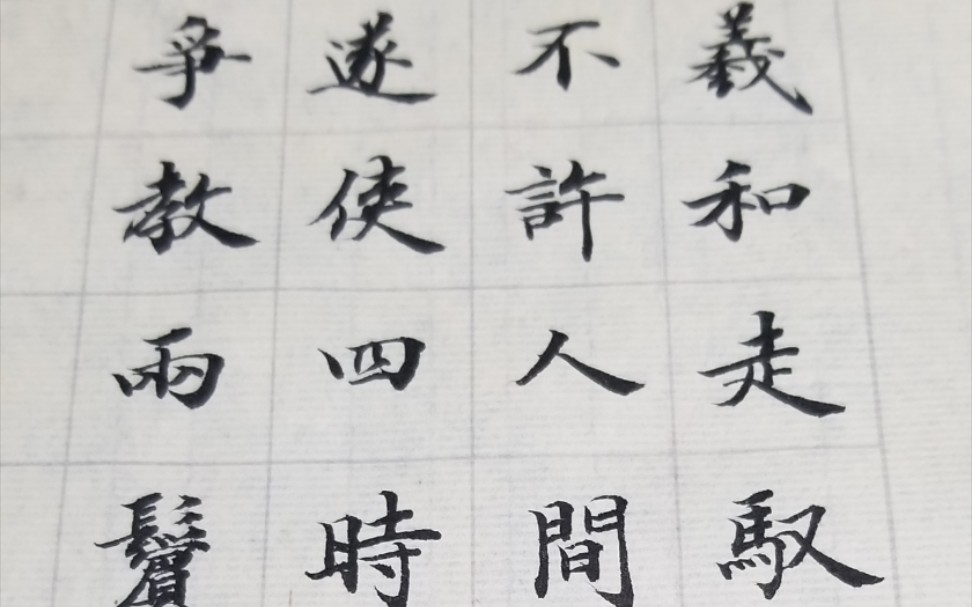 羲和走馭
不許人間
遂使四時
爭教兩鬢